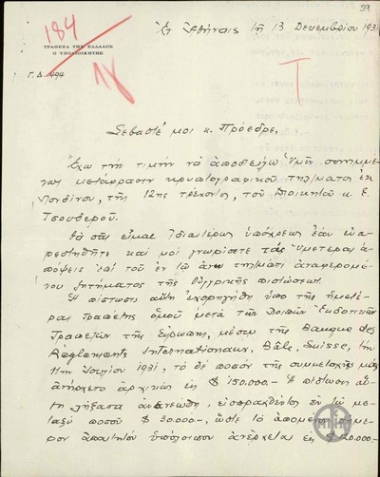 59
184
ΤΡΑΠΕΖΑ ΤΗΣ ΕΛΛΑΔΟΣ
Ο ΥΠΟΔΙΟΙΚΗΤΗΣ
Γ.Δ. 494
Ἐν Ἀθήναις τῇ 13 Δεκεμβρίου 1931
Τ
Σεβαστέ μοι κ. Πρόεδρε,
Ἔχω τὴν τιμὴν νὰ ἀποστείλω Ὑμῖν συνημμέ-
νως μετάφρασιν κρυπτογραφικοῦ τηλ/ματος ἐκ
Λονδίνου, τῆς 12ης τρέχοντος, τοῦ Διοικητοῦ κ. Ε.
Τσουδεροῦ.
Θὰ σᾶς εἶμαι ἰδιαιτέρως ὑπόχρεως ἐὰν εὐα-
ρεστηθῆτε καὶ μοὶ γνωρίσετε τὰς Ὑμετέρας
ἀπόψεις ἐπὶ τοῦ ἐν τῷ ἄνω τηλ/ματι ἀναφερομέ-
νου ζητήματος τῆς Οὑγγρικῆς πιστώσεως.
Ἡ πίστωσις αὕτη ἐχορηγήθη ὑπὸ τῆς ἡμετέ-
ρας Τραπέζης ὁμοῦ μετὰ τῶν λοιπῶν Ἐκδοτικῶν
Τραπεζῶν τῆς Εὐρώπης, μέσῳ τῆς Banque des
Règlements Internationaux, Bâle, Suisse, τὴν
1931, τὸ δὲ ποσὸν τῆς συμμετοχῆς μας
ἀνήρχετο ἀρχικῶς εἰς $ 150.000- Ἡ πίστωσις αὕ-
τη λήξασα ἀνενεώθη, εἰσπραχθέντος ἐν τῷ με-
ταξὺ ποσοῦ $ 30.000-, ὥστε τὸ ἀπομένον σήμε-
ρον ὑπόλοιπον ἀνέρχεται εἰς